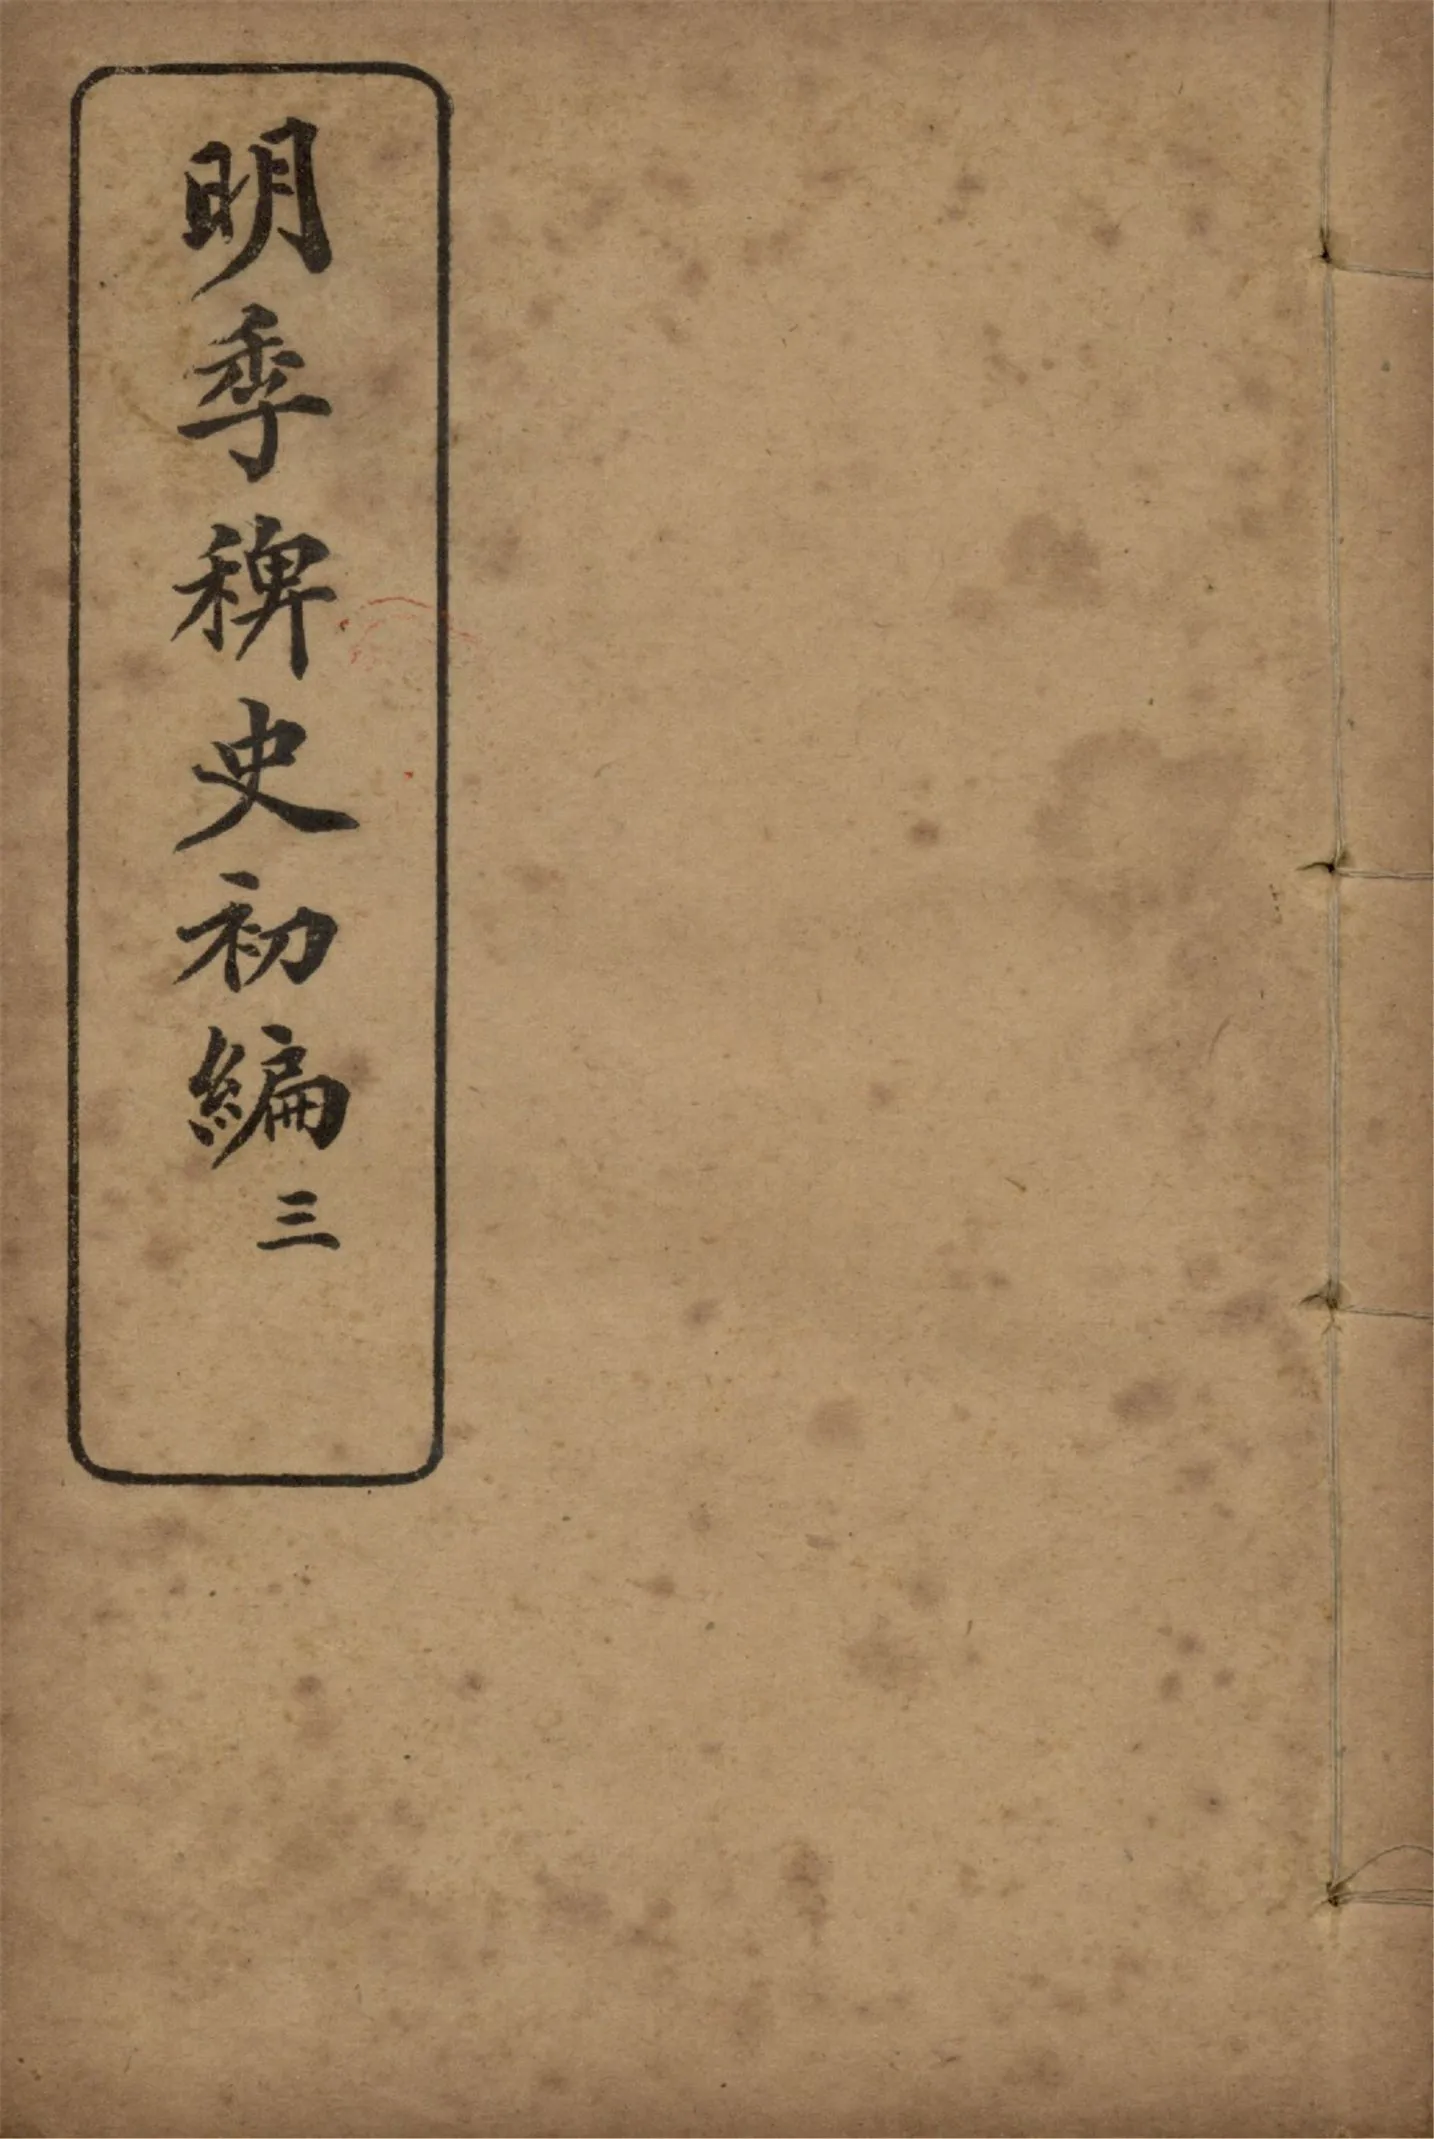 明季稗史初編三